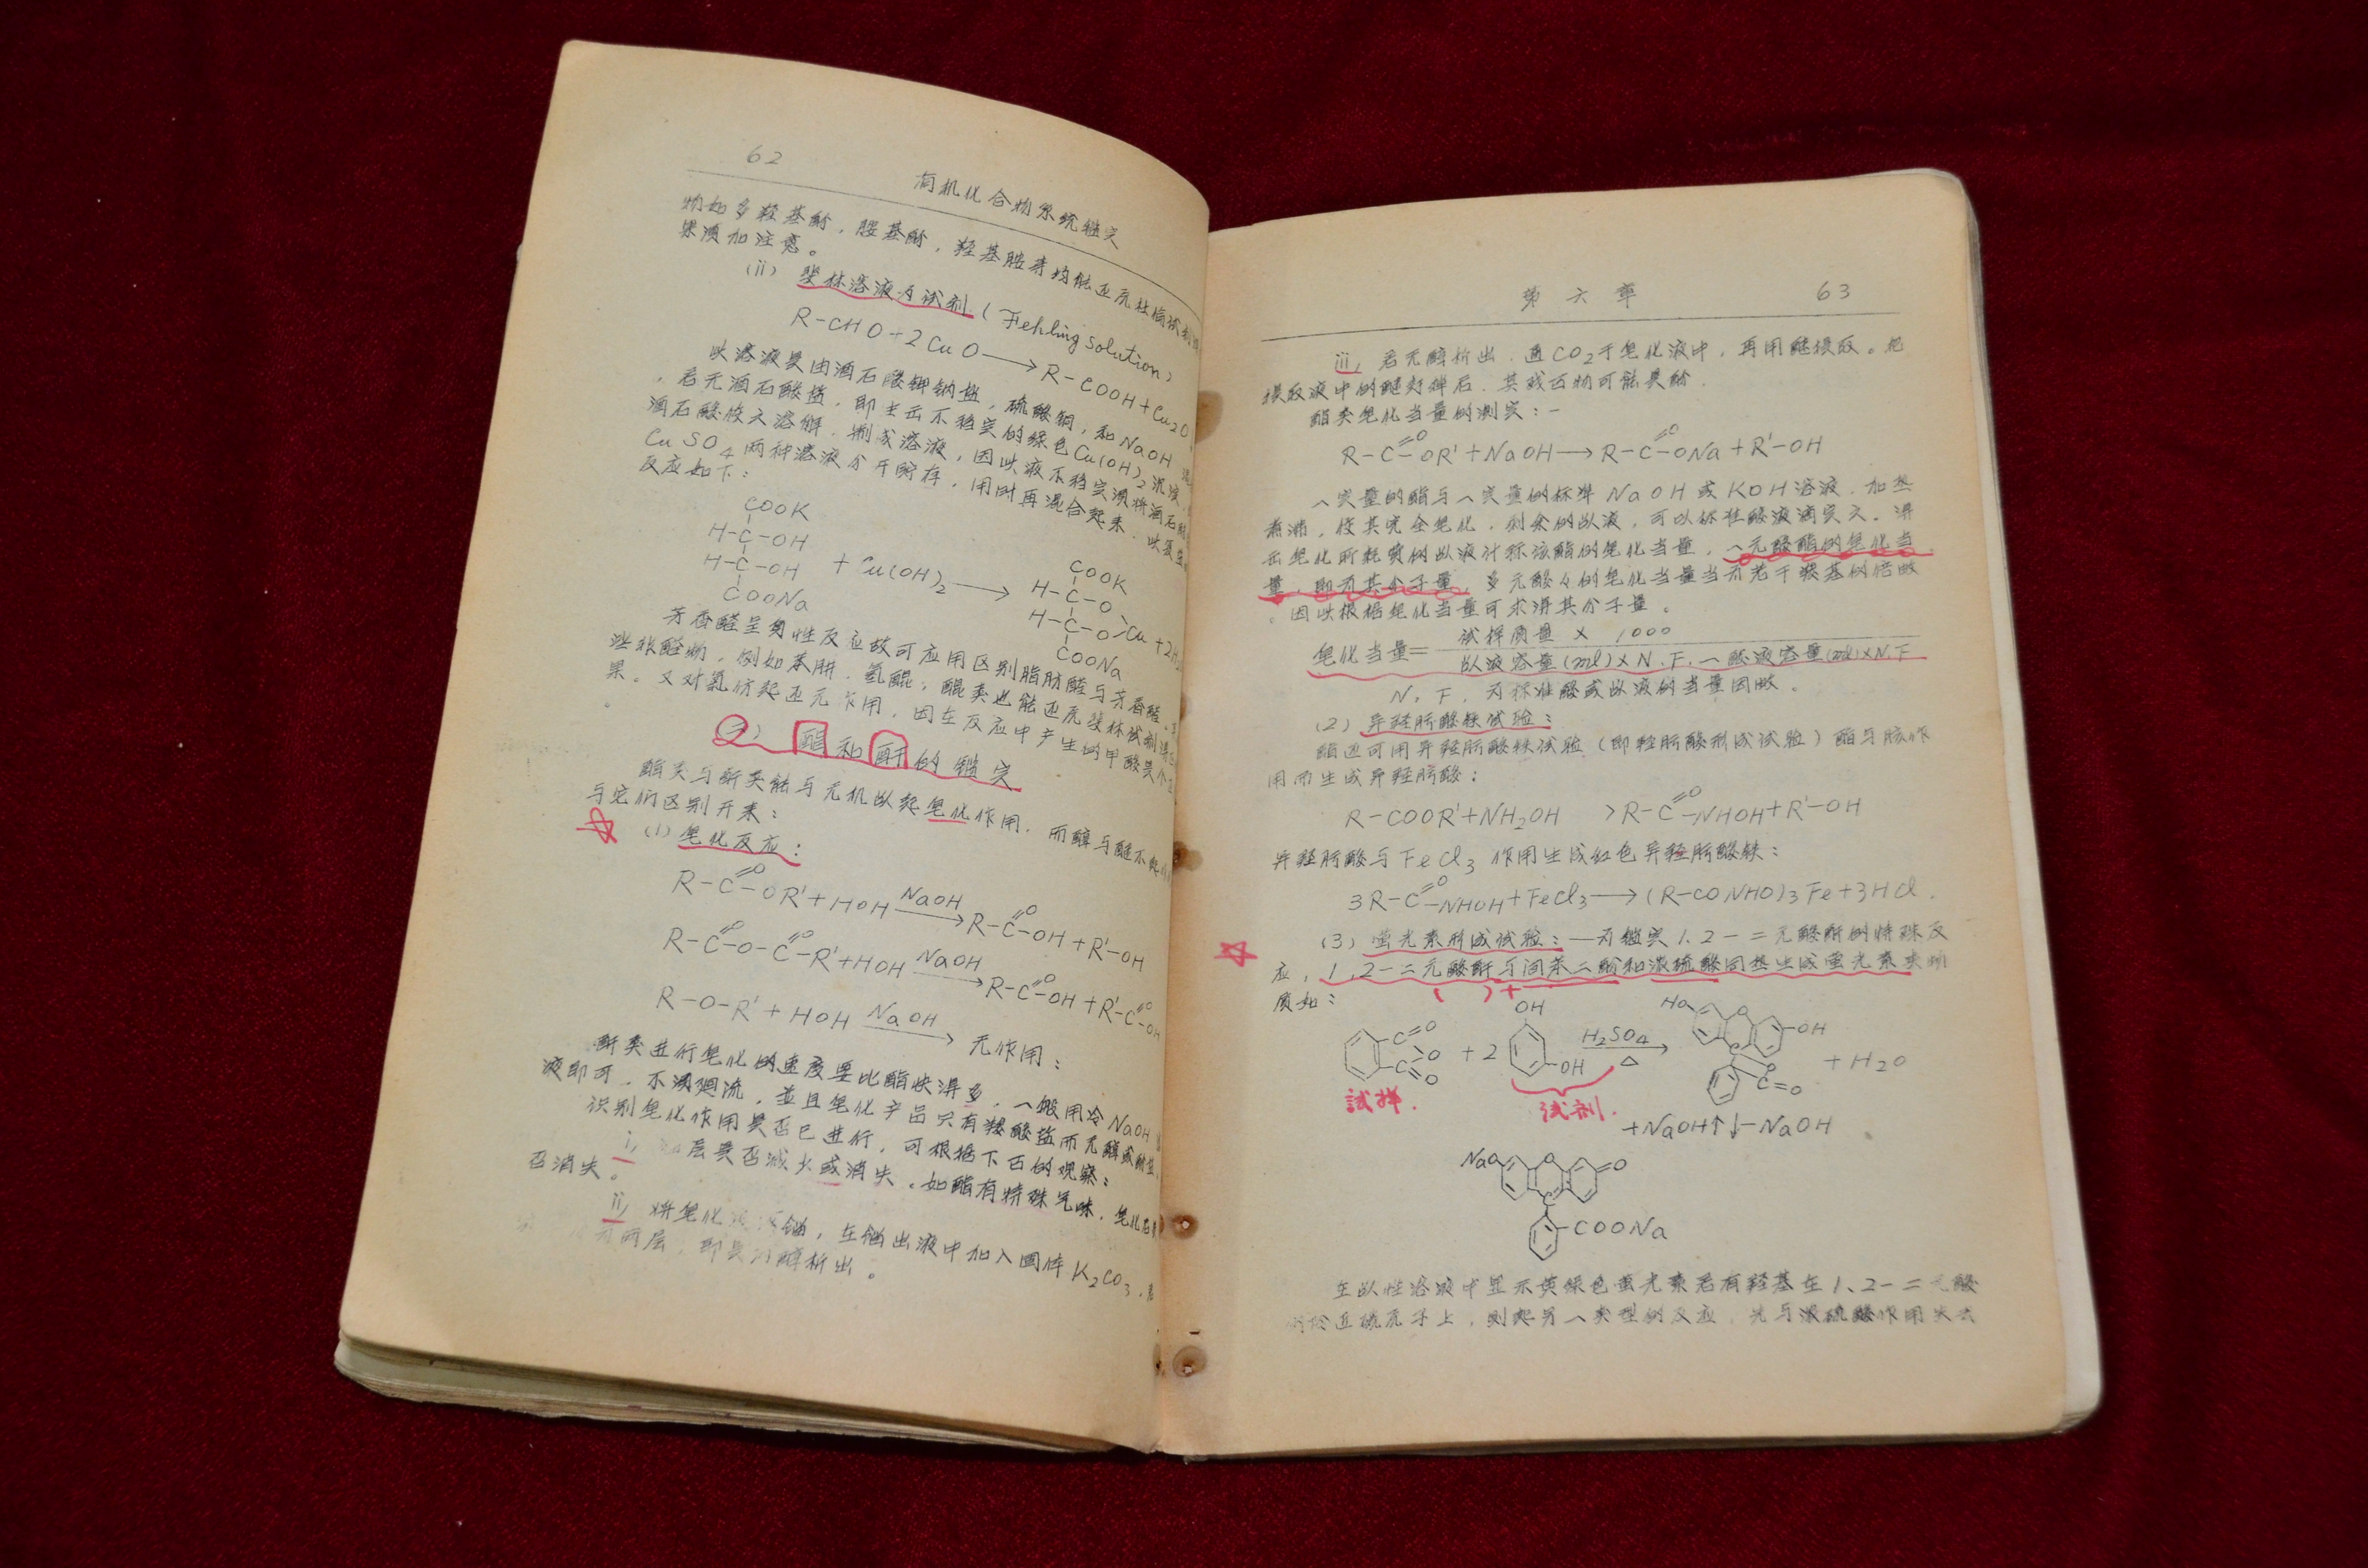 62
有机化合物系统鑑定
物如多羟基酚，胺基酚，羟基胺等均能还元杜倫试剂
果须加注意。
(ii) 斐林溶液为试剂 (Fehling solution)
R-CHO+2CuO→R-COOH+Cu₂O
此溶液是由酒石酸钾钠盐，硫酸铜，和NaOH
，若无酒石酸盐，即生云不稳定的绿色Cu(OH)₂沉淀
酒石酸使之溶解，制成溶液，因此液不稳定须将酒石酸
CuSO₄两种溶液分开贮存，用时再混合起来．
反应如下：
COOK
H-C-OH
H-C-OH
COONa
+Cu(OH)₂→
COOK
H-C-O
H-C-O Cu +2H₂
COONa
芳香醛呈负性反应故可应用区别脂肪醛与芳香醛．
些非醛物，例如苯肼．氢醌，醌类也能还原斐林试剂
果。又对氯仿起还元作用，因在反应中产生的甲酸
2) 酯和酐的鑑定
酯类与酐类能与无机碱起皂化作用．而醇与醚不起
与它们区别开来：
(1) 皂化反应：
R-C(=O)-OR'+HOH NaOH→R-C(=O)-OH+R'-OH
R-C(=O)-O-C(=O)-R'+HOH NaOH→R-C(=O)-OH+R'-C(=O)-OH
R-O-R'+HOH NaOH→无作用：
酐类进行皂化的速度要比酯快得多，一般用冷NaOH
液即可，不须廻流，並且皂化产品只有羧酸盐而无醇或酚
识别皂化作用是否已进行，可根据下面的观察：
i, 层是否减少或消失。如酯有特殊气味．皂化后
否消失。
ii, 将皂化 馏，在馏出液中加入固体K₂CO₃，
两层，即是 醇析出。
第六章 63
iii, 若无醇析出．通CO₂于皂化液中，再用醚提取。把
提取液中的醚蒸掉后．其残百物可能是酚．
酯类皂化当量的测定：-
R-C(=O)-OR'+NaOH→R-C(=O)-ONa+R'-OH
一定量的酯与一定量的标準NaOH或KOH溶液．加热
煮沸，使其完全皂化．剩余的碱液，可以标准酸液滴定之．得
出皂化所耗费的碱液计称该酯的皂化当量，一元酸酯的皂化当
量，即为其分子量．多元酸々的皂化当量当为若干羧基的倍数
。因此根据皂化当量可求得其分子量。
皂化当量=试样质量×1000
碱液容量(ml)×N.F.－酸液容量(ml)×N.F
N．F．为标准酸或碱液的当量因数．
(2) 异羟肟酸铁试验：
酯还可用异羟肟酸铁试验（即羟肟酸形成试验）酯与胲作
用而生成异羟肟酸：
R-COOR'+NH₂OH >R-C(=O)-NHOH+R'-OH
异羟肟酸与FeCl₃作用生成红色异羟肟酸铁：
3R-C(=O)-NHOH+FeCl₃→(R-CONHO)₃Fe+3HCl．
(3) 萤光素形成试验：—为鑑定1．2-二元酸酐的特殊反
应，1．2-二元酸酐与间苯二酚和浓硫酸同热生成萤光素类物
质如：
( )+
C=O
O
C=O
+2
OH
OH
H₂SO₄
△
HO
O
OH
C
O
C=O
+H₂O
試样． 试剂．
+NaOH↑↓-NaOH
NaO
O
=O
C
-COONa
在碱性溶液中显示黄绿色萤光素若有羟基在1、2-二元酸
的 近碳原子上，则起另一类型的反应，先与浓硫酸作用失去